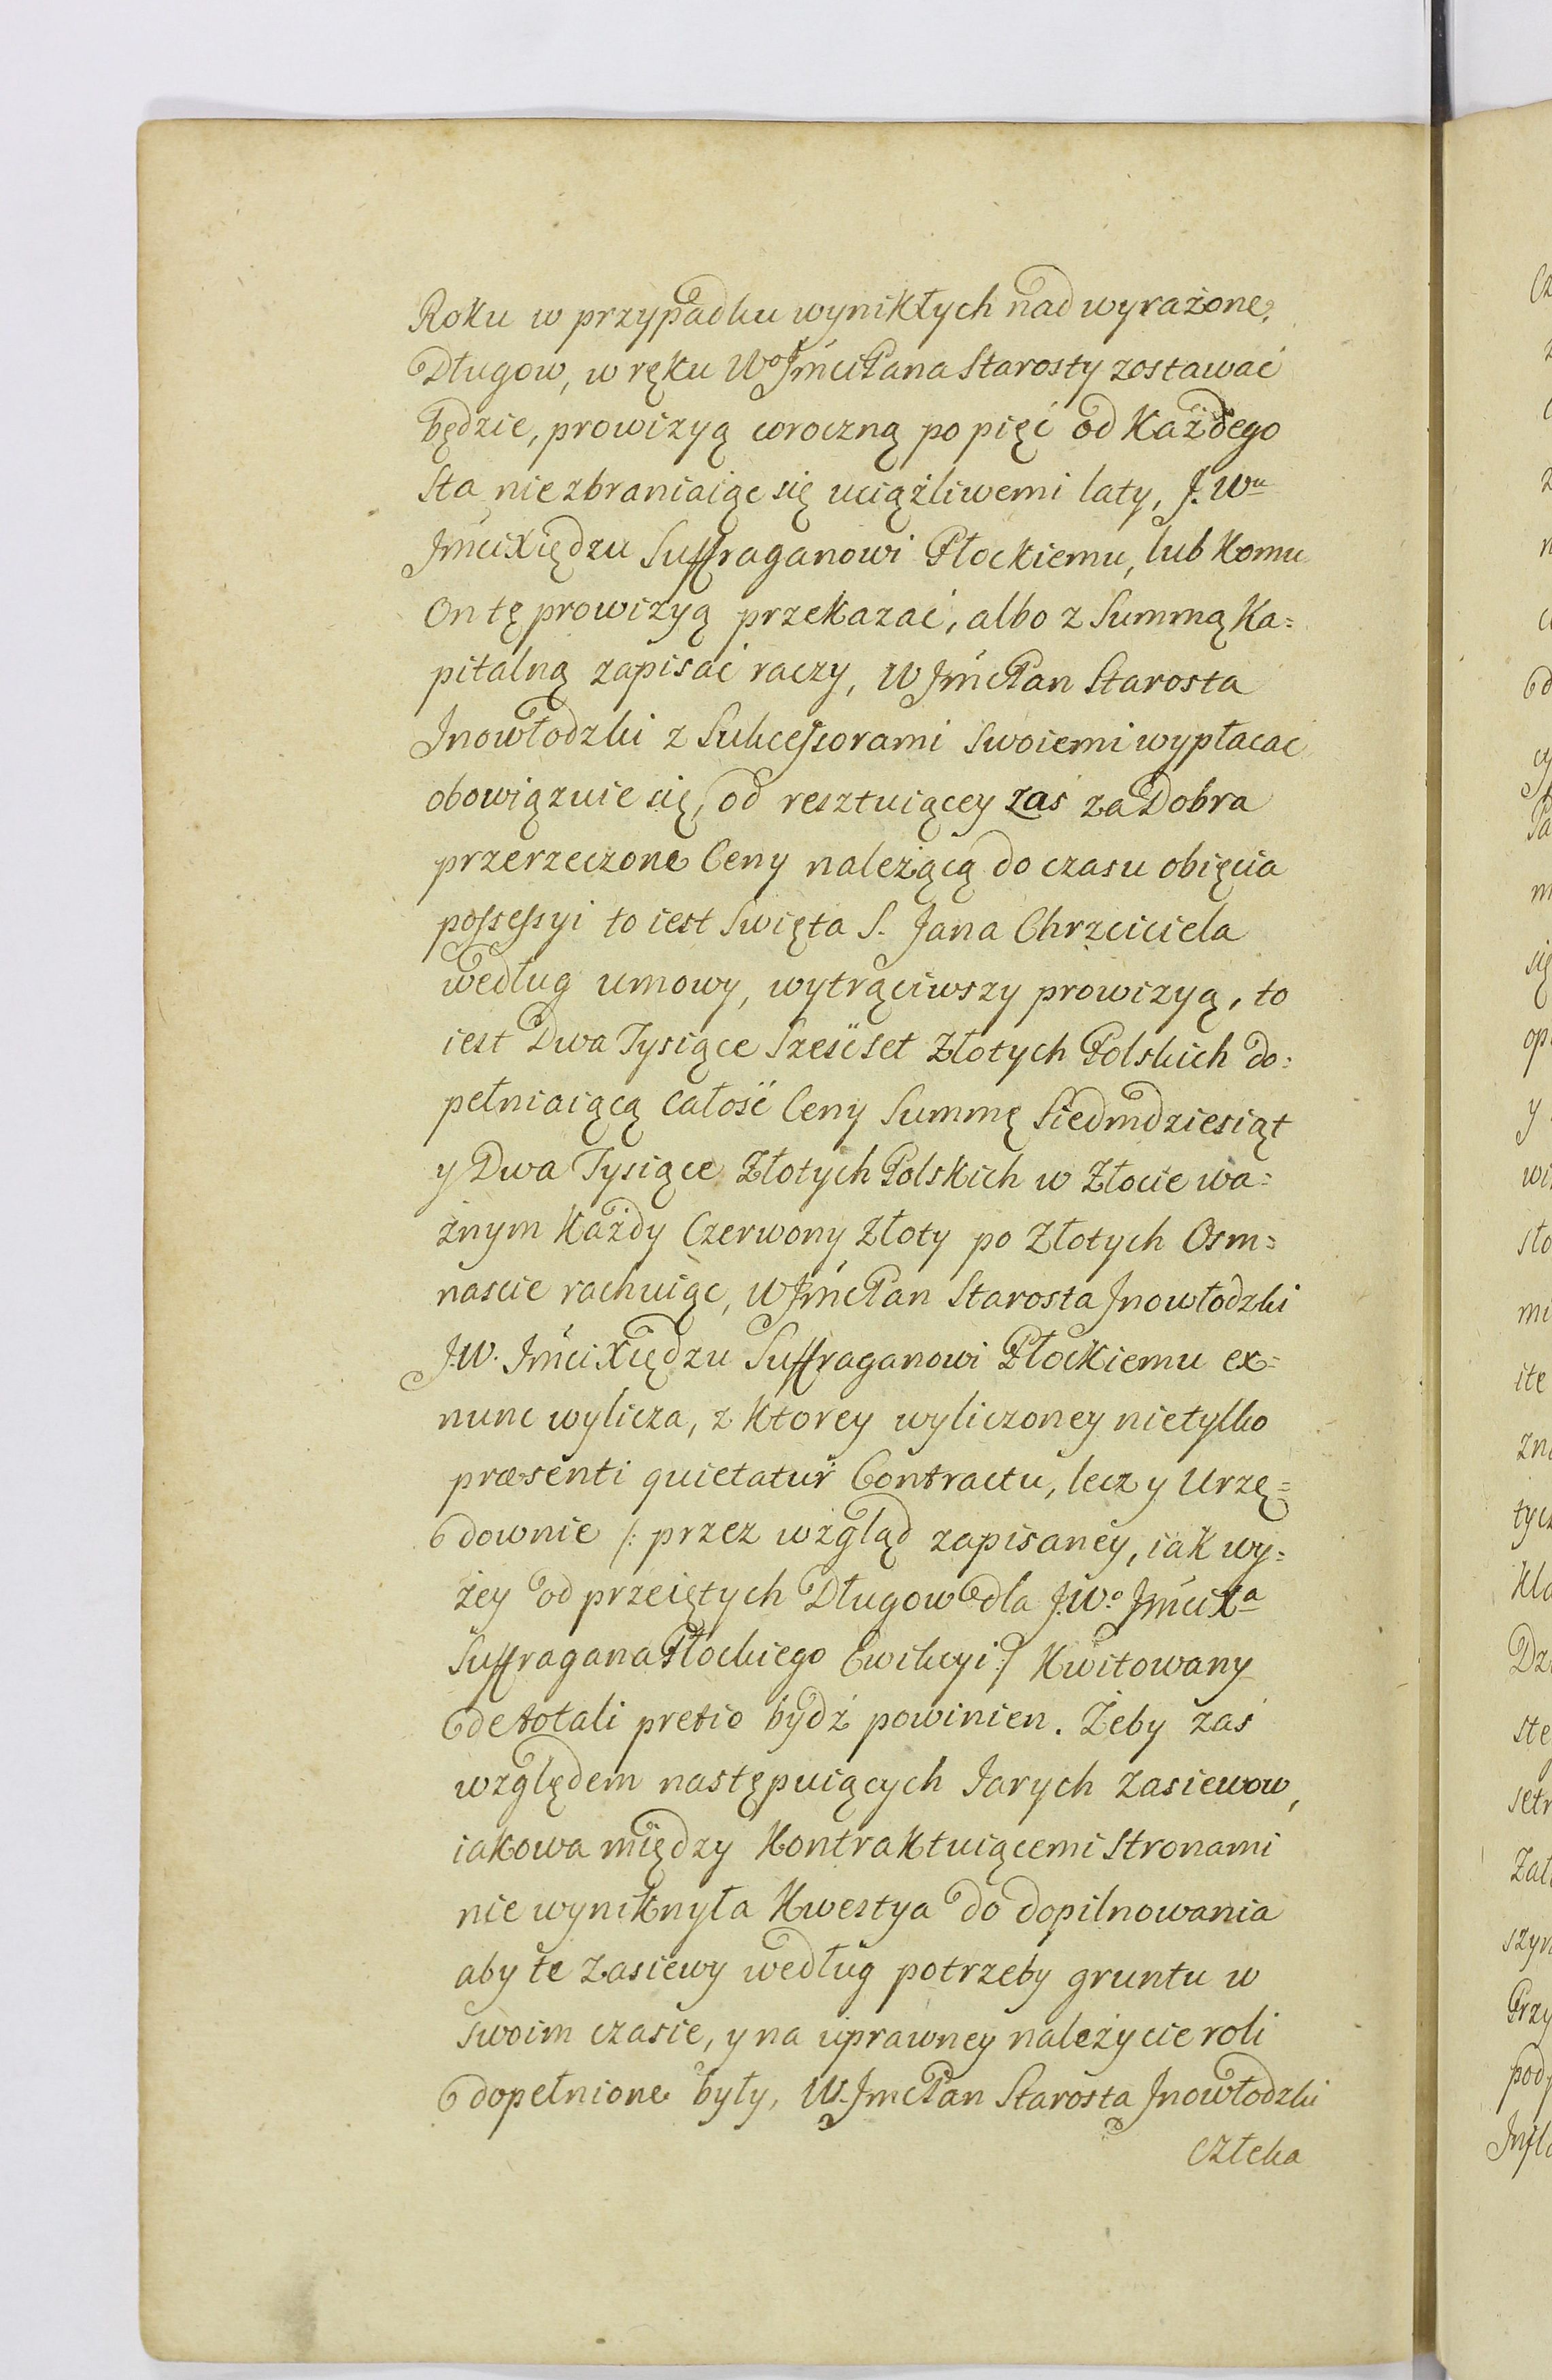 Roku w przypadku wynikłych nad wyrażone,
Długow, w ręku Wo JmciPana Starosty zostawać
będzie, prowizyą coroczną po pięć od Każdego
Sta niezbraniaiąc się uciążliwemi laty, J. Wu
JmciXiędzu Suffraganowi Płockiemu, lub Komu
On tę prowizyą przekazać, albo z Summą Ka=
pitalną zapisać raczy, W JmćPan Starosta
Jnowłodzki z Sukcessorami Swoiemi wypłacac
obowiązuie się, od resztuiącey zaś za Dobra
przerzeczone Ceny należącą do czasu obięcia
possessyi to iest Swięta S. Jana Chrzciciela
według umowy, wytrąciwszy prowizyą, to
iest Dwa Tysiące Sześćset Złotych Polskich do=
pełniaiącą całość Ceny Summę Siedmdziesiąt
y Dwa Tysiące Złotych Polskich w Złocie wa=
żnym Każdy Czerwony Złoty po Złotych Osm=
nascie rachuiąc, W JmćPan Starosta Jnowłodzki
J.W. JmciXiędzu Suffraganowi Płockiemu ex=
nunc wylicza, z Ktorey wyliczoney nietylko
præsenti quietatur Contractu, lecz y Urzę=
downie /: przez wzgląd zapisaney, iak wy=
żey od przeiętych Długow dla J.Wo JmciXa
Suffragana Płockiego Ewikcyi :/ Kwitowany
de totali pretio bydź powinien. Żeby zaś
względem następuiących Jarych zasiewow,
iakowa między Kontraktuiącemi Stronami
nie wyniknyła Kwestya do dopilnowania
aby te zasiewy według potrzeby gruntu w
swoim czasie, y na uprawney należycie roli
dopełnione były, W. JmcPan Starosta Jnowłodzki
człeka